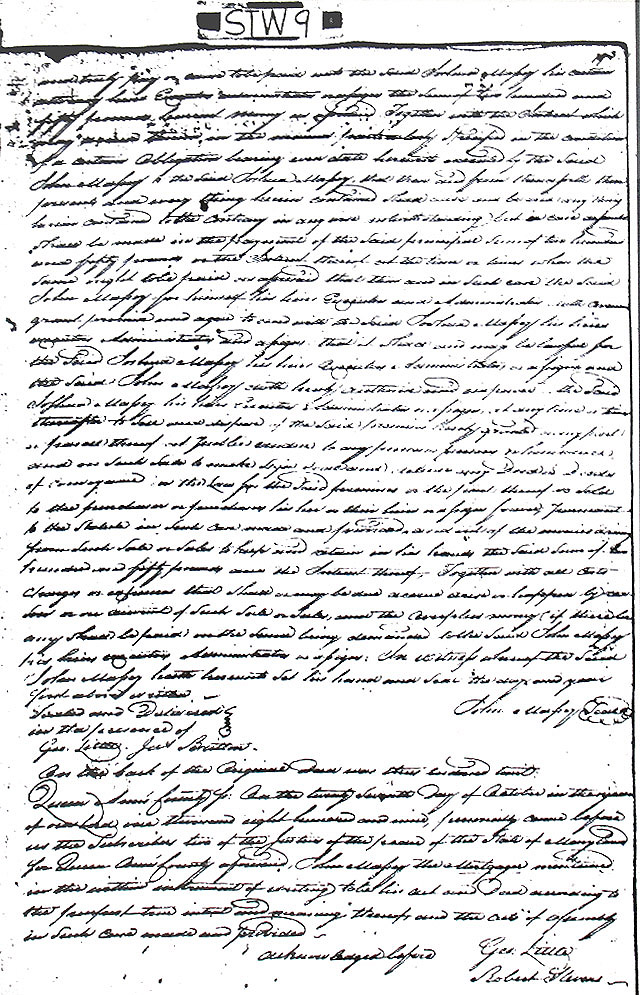 STW 9
and truly pay or cause to be paid unto the said Joshua Massy his certain
attorney heirs Executors administrators or assigns the Sum of Two hundred and
fifty pounds Current Money as aforesaid Together with the Interest which
may accrue thereon in the manner particularly specified in the condition
of a certain Obligation bearing even date herewith executed by the Said
John Massy to the said Joshua Massy, that then and from thenceforth these
presents and every thing herein contained shall cease and be void any thing
herein contained to the Contrary in any wise notwithstanding, but in case default
shall be made in the payment of the said principal Sum of two hundred
and fifty pounds or the Interest thereof at the time or times when the
same ought to be paid as aforesaid that then and in such case the Said
John Massy for himself his heirs Executors and Administrators doth Covenant
grant promise and agree to and with the Said Joshua Massy his heirs
executors Administrators and assigns that it shall and may be lawful for
the Said Joshua Massy his heirs Executors Administrators or assigns and
the Said John Massy doth hereby authorise and empower the Said
Joshua Massy his heirs Executors Administrators or assigns, at any time or times
thereafter to Sell and dispose of the Said premises hereby granted or any part
or parcell thereof at Public vendue to any person or persons whomsoever
and on such Sale to make Sign Seal and deliver any Deed or Deeds
of Conveyance in the Law for the Said premises or the part thereof so Sold
to the purchaser or purchasers his her or their heirs or assigns forever, pursuant
to the Statute in such Case made and provided, and out of the monies arising
from such Sale or Sales to keep and retain in his hands the Said Sum of two
hundred and fifty pounds and the Interest thereof, Together with all Costs
Charges or expences that shall or may be due accrue arise or happen by reason
or on account of such Sale or Sales, and the overplus money (if there be
any) shall be paid on the same being demanded to the Said John Massy
his heirs executors Administrators or assigns. In witness whereof the Said
John Massy hath hereunto Set his hand and seal the day and year
first above written
John Massy Seal
Sealed and Delivered
in the presence of
Geo. Little. Jas Bratton.
On the back of the Original deed was thus endorsed to wit.
Queen Anns County Sc. On the twenty Seventh Day of October in the year
of our Lord, one thousand eight hundred and nine, personally came before
us the Subscribers two of the Justices of the peace of the State of Maryland
for Queen Anns County aforesaid, John Massy the Mortgager mentioned
in the within instrument of writing to be his act and Deed according to
the purport true intent and meaning thereof and the Act of assembly
in such case made and provided
acknowledged before
Geo. Little
Robert Stevens